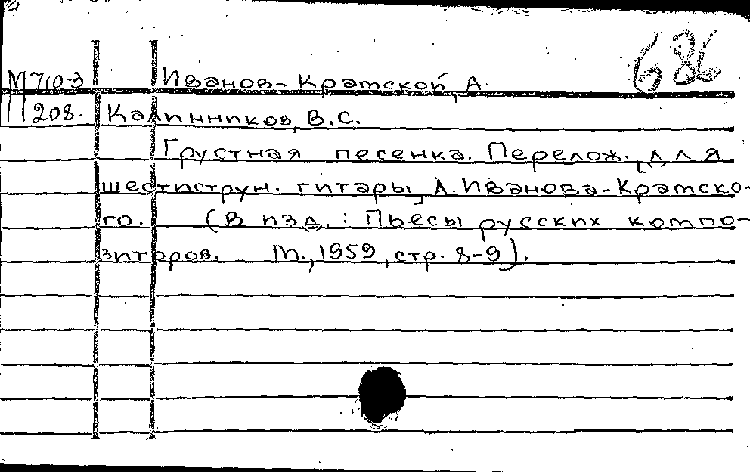 686
М7103 Иванов-Кратской, А.
208. Калинников, В.С.
Грустная песенка. Перелож. для
шестиструн. гитары А. Иванова-Крамско-
го. (В изд.: Пьесы русских компо-
зиторов. М., 1959, стр. 8-9).